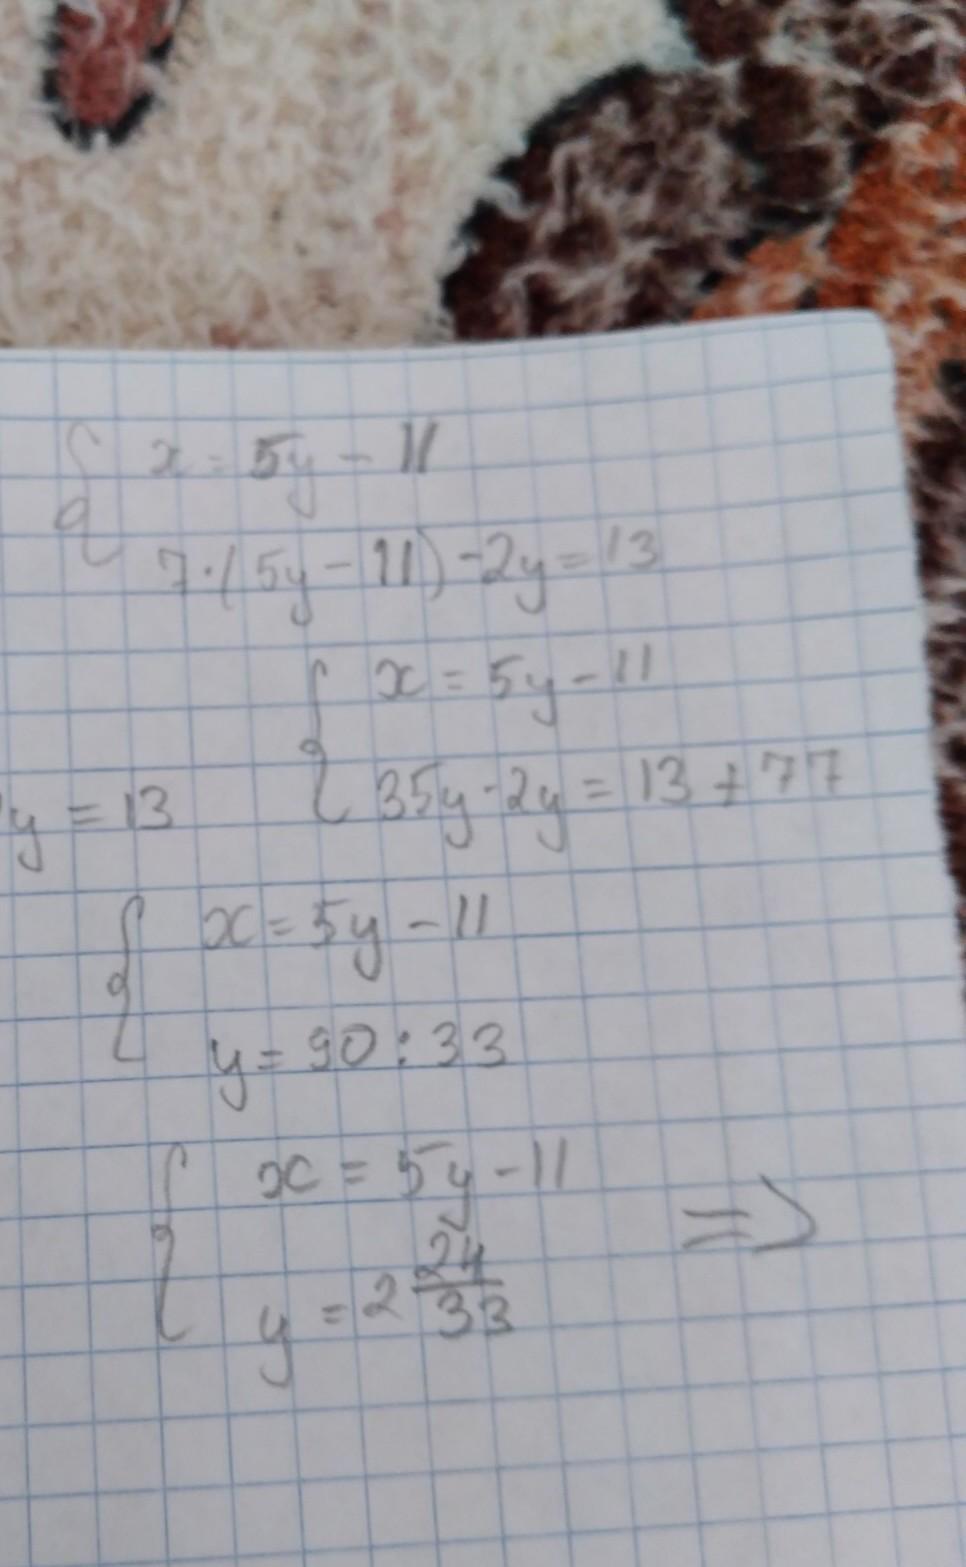 x = 5y - 11
7·(5y - 11) - 2y = 13
x = 5y - 11
y = 13
35y - 2y = 13 + 77
x = 5y - 11
y = 90 : 33
x = 5y - 11 =>
y = 2 24/33